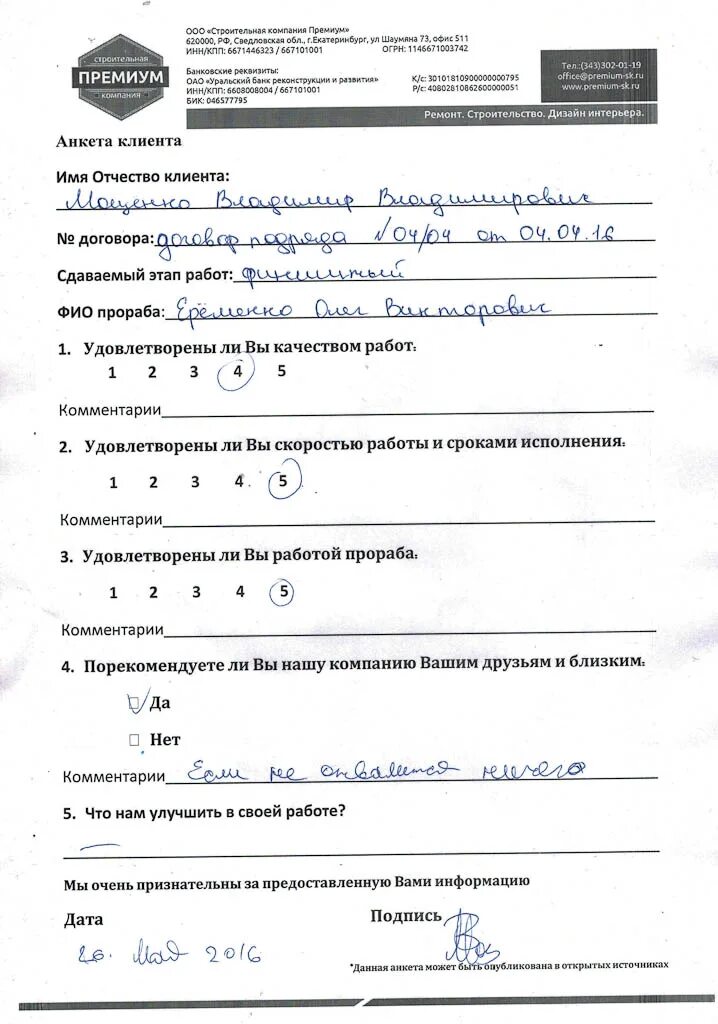 строительная
ПРЕМИУМ
компания
ООО «Строительная компания Премиум»
620000, РФ, Сведловская обл., г.Екатеринбург, ул Шаумяна 73, офис 511
ИНН/КПП: 6671446323 / 667101001 ОГРН: 1146671003742
Банковские реквизиты:
ОАО «Уральский банк реконструкции и развития» К/с: 30101810900000000795
ИНН/КПП: 6608008004 / 667101001 Р/с: 40802810862600000051
БИК: 046577795
Тел.:(343)302-01-19
office@premium-sk.ru
www.premium-sk.ru
Ремонт. Строительство. Дизайн интерьера.
Анкета клиента
Имя Отчество клиента:
Мощенко Владимир Владимирович
№ договора: договор подряда №04/04 от 04.04.16
Сдаваемый этап работ: финишный
ФИО прораба: Ерёменко Олег Викторович
1. Удовлетворены ли Вы качеством работ:
1 2 3 4 5
Комментарии
2. Удовлетворены ли Вы скоростью работы и сроками исполнения:
1 2 3 4 5
Комментарии
3. Удовлетворены ли Вы работой прораба:
1 2 3 4 5
Комментарии
4. Порекомендуете ли Вы нашу компанию Вашим друзьям и близким:
Да
Нет
Комментарии Если не отвалится ничего
5. Что нам улучшить в своей работе?
—
Мы очень признательны за предоставленную Вами информацию
Дата Подпись
26. Мая 2016
*Данная анкета может быть опубликована в открытых источниках